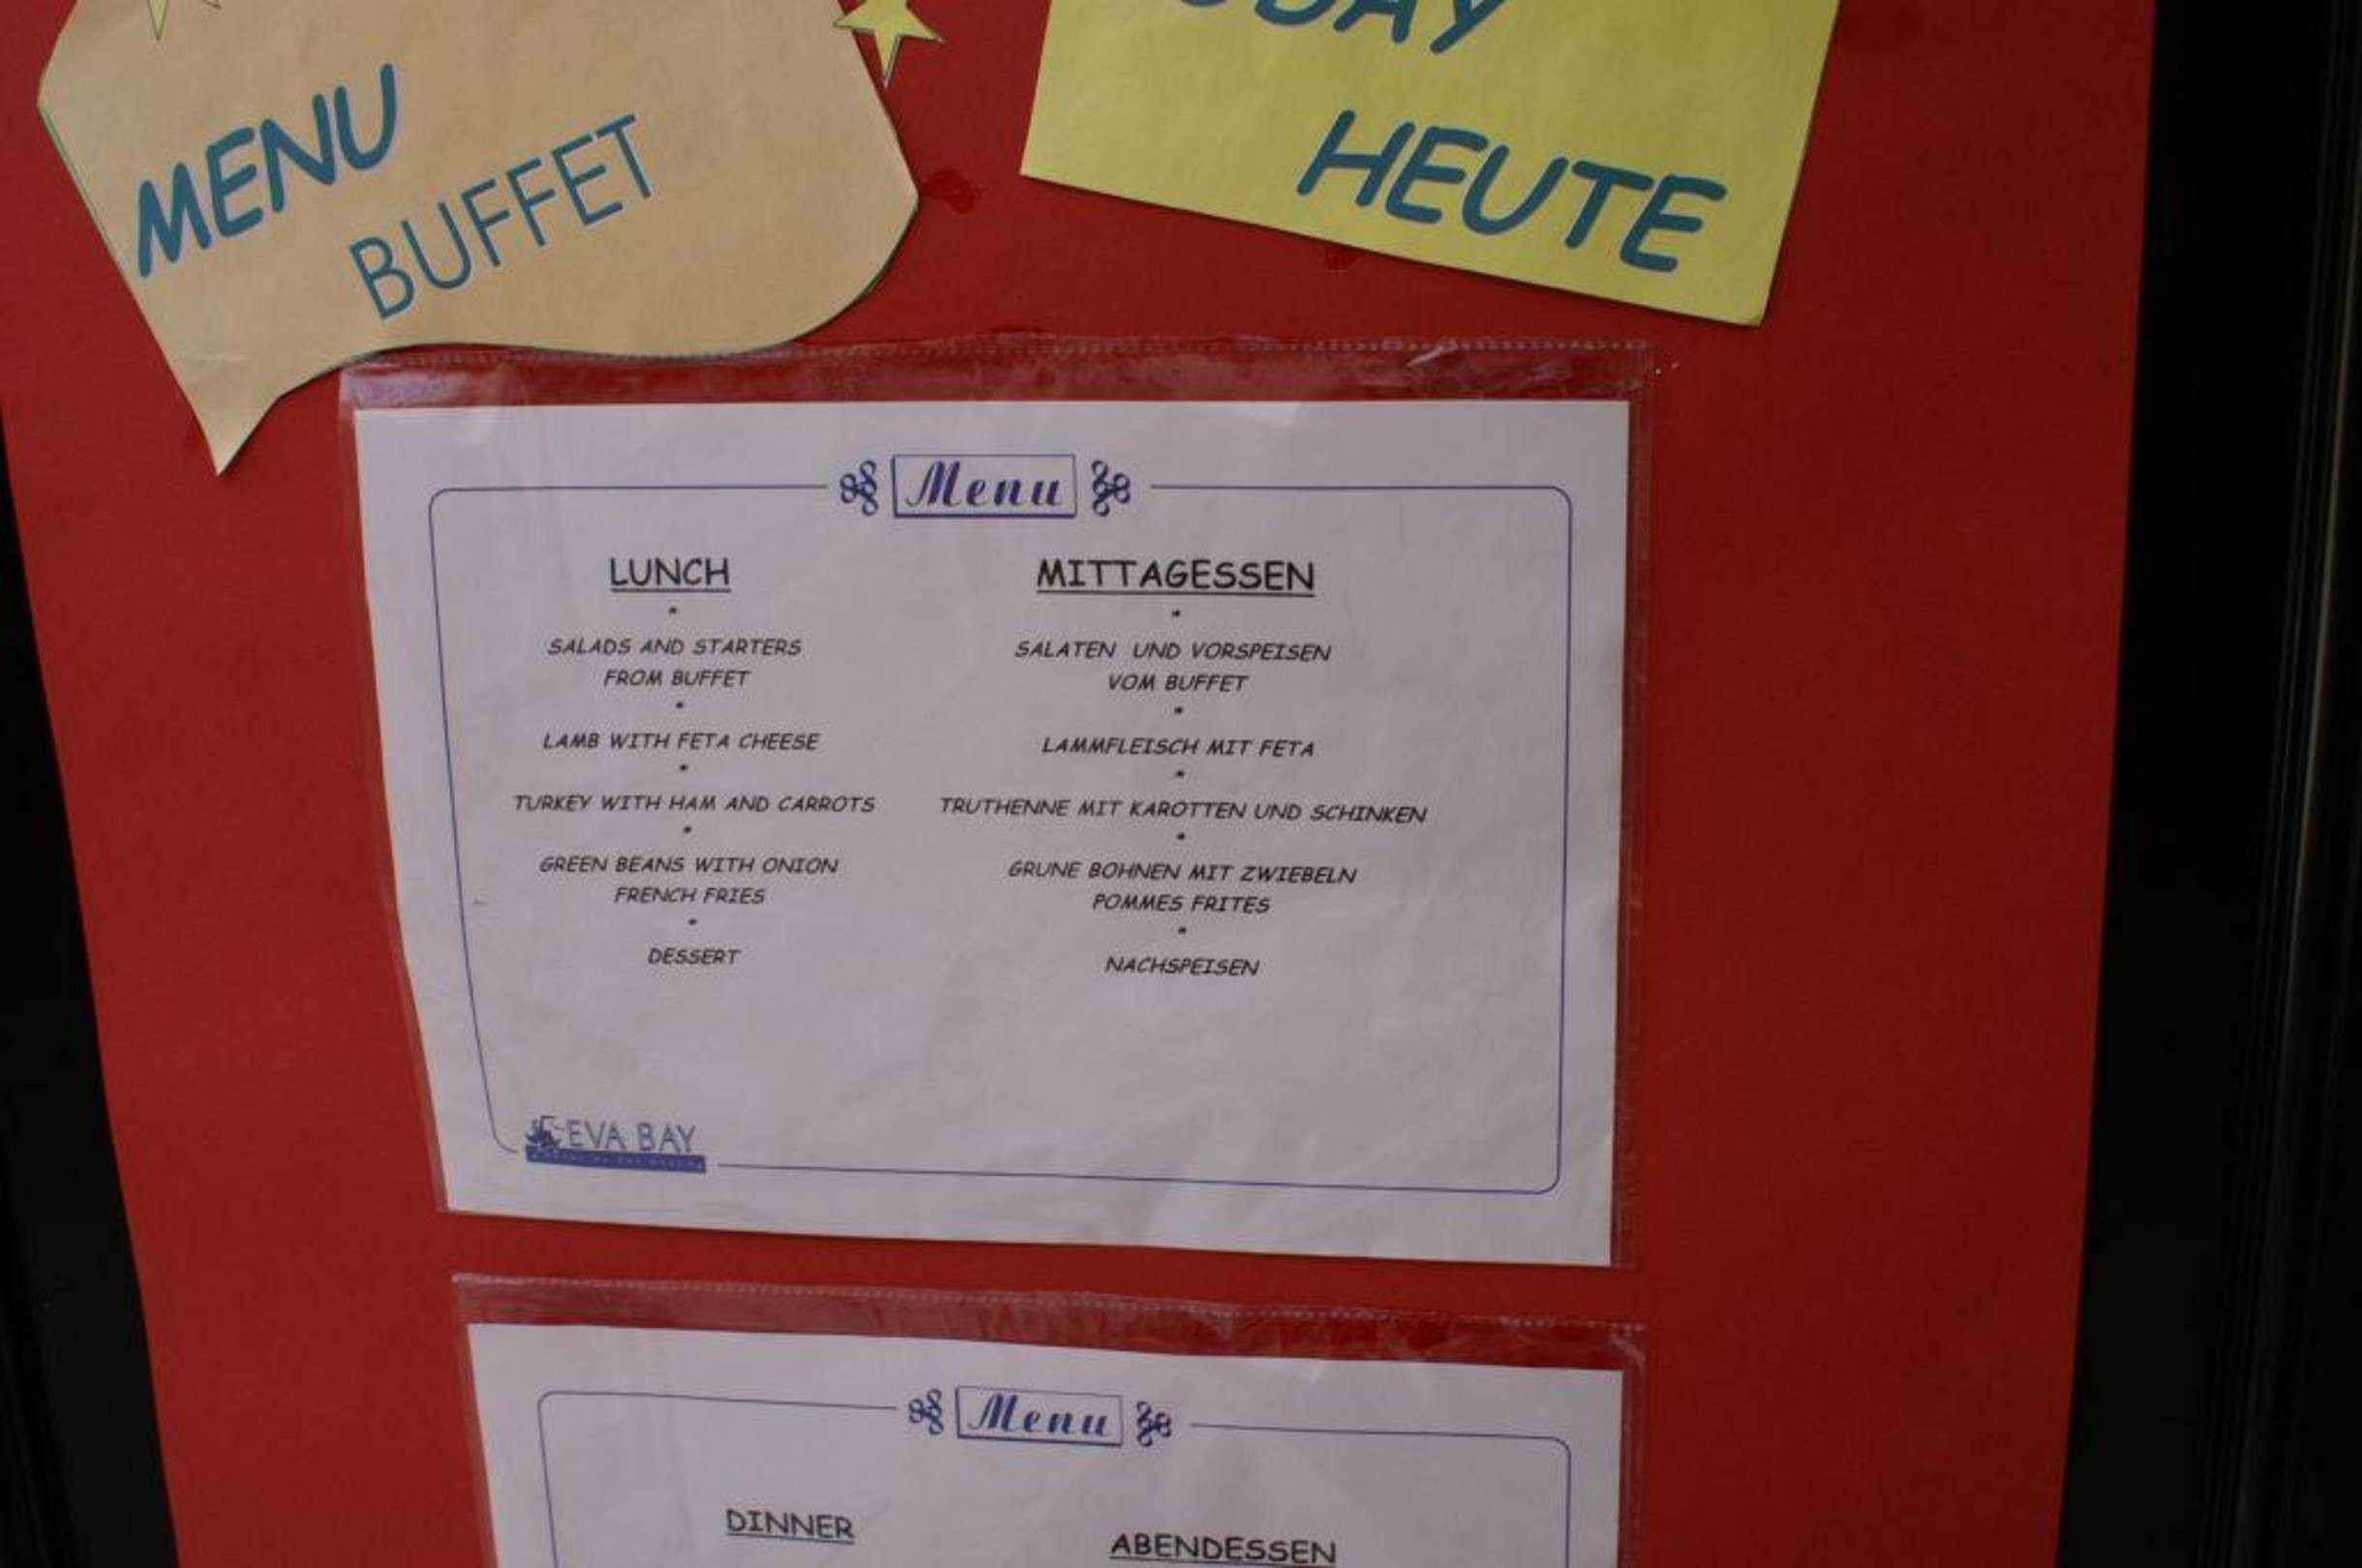 MENU
BUFFET
HEUTE
Menu
LUNCH
SALADS AND STARTERS
FROM BUFFET
LAMB WITH FETA CHEESE
TURKEY WITH HAM AND CARROTS
GREEN BEANS WITH ONION
FRENCH FRIES
DESSERT
MITTAGESSEN
SALATEN UND VORSPEISEN
VOM BUFFET
LAMMFLEISCH MIT FETA
TRUTHENNE MIT KAROTTEN UND SCHINKEN
GRUNE BOHNEN MIT ZWIEBELN
POMMES FRITES
NACHSPEISEN
EVA BAY
Menu
DINNER
ABENDESSEN